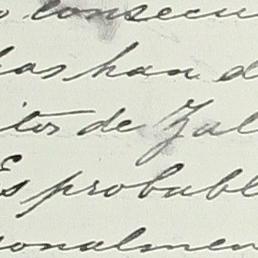 o consecu
has han d
itos de Zal
Es probabl
sonalmen